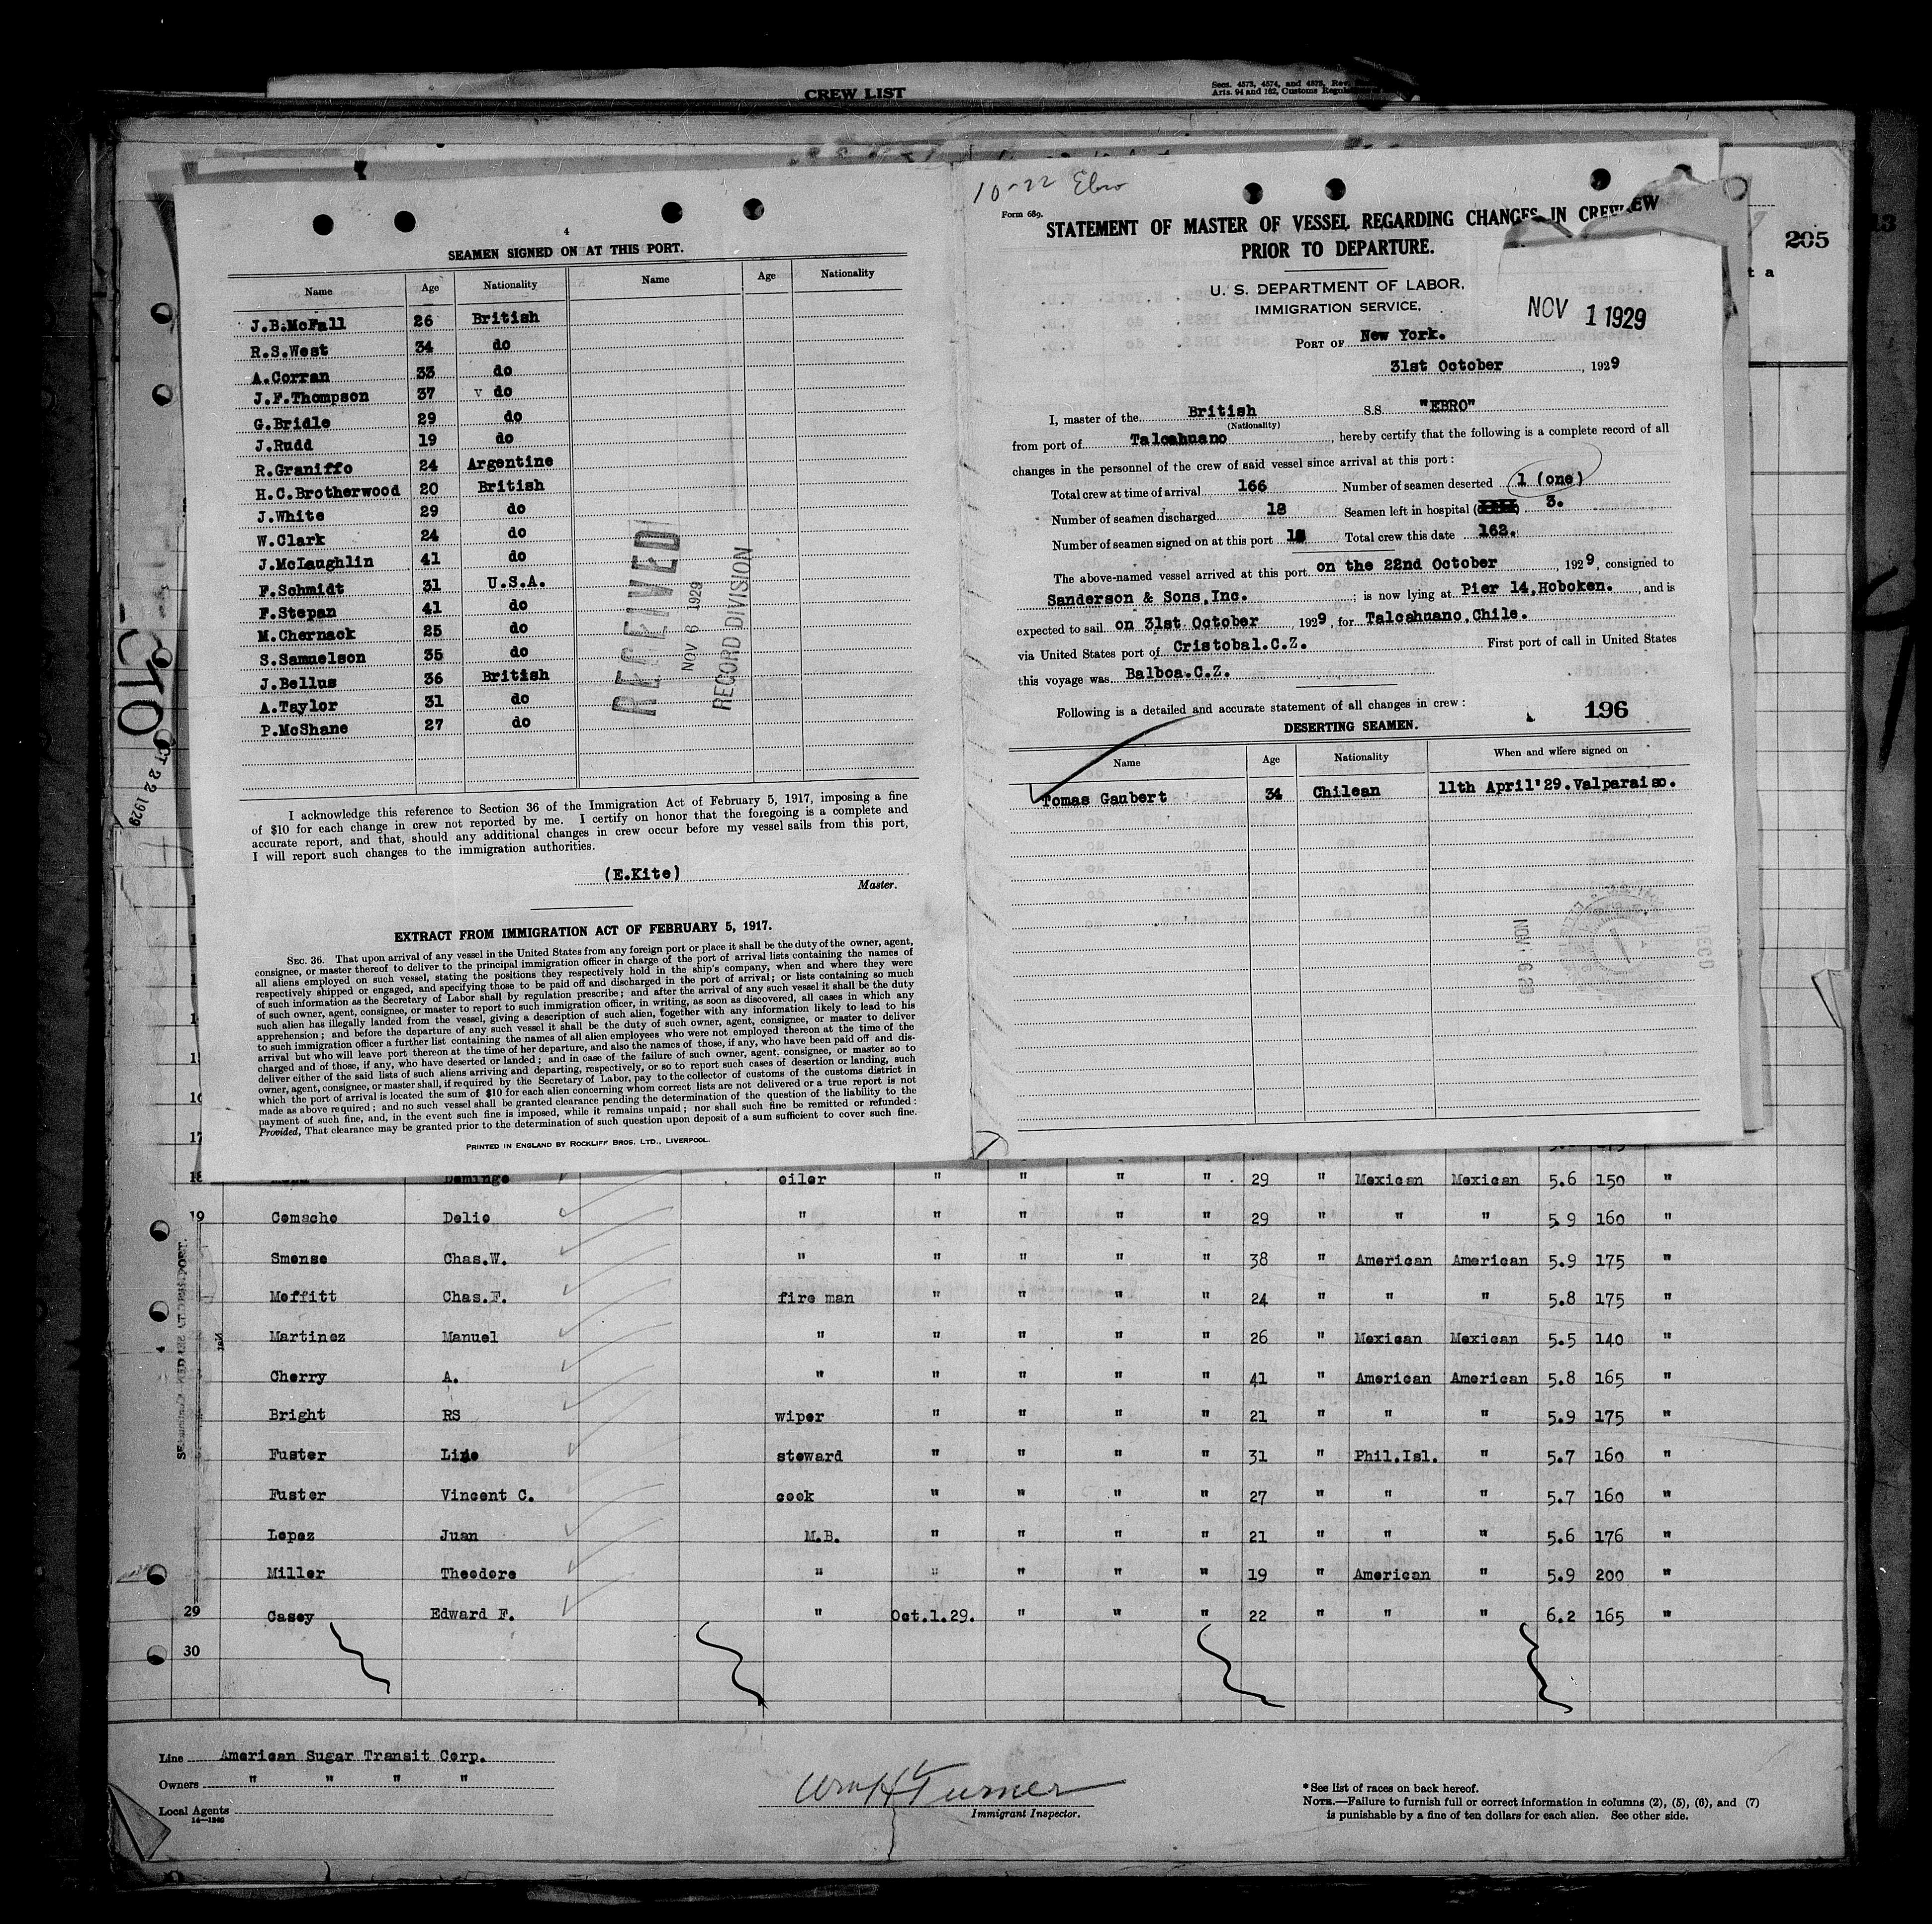 CREW LIST
Secs. 4573, 4574, and 4575, Rev.
Arts. 94 and 162, Customs
205
13
t a
4
SEAMEN SIGNED ON AT THIS PORT.
Name Age Nationality Name Age Nationality
J.B.McFall 26 British
R.S.West 34 do
A.Corran 33 do
J.F.Thompson 37 v do
G.Bridle 29 do
J.Rudd 19 do
R.Graniffo 24 Argentine
H.C.Brotherwood 20 British
J.White 29 do
W.Clark 24 do
J.McLaughlin 41 do
F.Schmidt 31 U.S.A.
F.Stepan 41 do
M.Chernack 25 do
S.Samuelson 35 do
J.Bellus 36 British
A.Taylor 31 do
P.McShane 27 do
RECEIVED
NOV 6 1929
RECORD DIVISION
I acknowledge this reference to Section 36 of the Immigration Act of February 5, 1917, imposing a fine
of $10 for each change in crew not reported by me. I certify on honor that the foregoing is a complete and
accurate report, and that, should any additional changes in crew occur before my vessel sails from this port,
I will report such changes to the immigration authorities.
(E.Kite)
Master.
EXTRACT FROM IMMIGRATION ACT OF FEBRUARY 5, 1917.
SEC. 36. That upon arrival of any vessel in the United States from any foreign port or place it shall be the duty of the owner, agent,
consignee, or master thereof to deliver to the principal immigration officer in charge of the port of arrival lists containing the names of
all aliens employed on such vessel, stating the positions they respectively hold in the ship's company, when and where they were
respectively shipped or engaged, and specifying those to be paid off and discharged in the port of arrival; or lists containing so much
of such information as the Secretary of Labor shall by regulation prescribe; and after the arrival of any such vessel it shall be the duty
of such owner, agent, consignee, or master to report to such immigration officer, in writing, as soon as discovered, all cases in which any
such alien has illegally landed from the vessel, giving a description of such alien, together with any information likely to lead to his
apprehension; and before the departure of any such vessel it shall be the duty of such owner, agent, consignee, or master to deliver
to such immigration officer a further list containing the names of all alien employees who were not employed thereon at the time of the
arrival but who will leave port thereon at the time of her departure, and also the names of those, if any, who have been paid off and dis-
charged and of those, if any, who have deserted or landed; and in case of the failure of such owner, agent, consignee, or master so to
deliver either of the said lists of such aliens arriving and departing, respectively, or so to report such cases of desertion or landing, such
owner, agent, consignee, or master shall, if required by the Secretary of Labor, pay to the collector of customs of the customs district in
which the port of arrival is located the sum of $10 for each alien concerning whom correct lists are not delivered or a true report is not
made as above required; and no such vessel shall be granted clearance pending the determination of the question of the liability to the
payment of such fine, and, in the event such fine is imposed, while it remains unpaid; nor shall such fine be remitted or refunded:
Provided, That clearance may be granted prior to the determination of such question upon deposit of a sum sufficient to cover such fine.
PRINTED IN ENGLAND BY ROCKLIFF BROS. LTD., LIVERPOOL.
10-22 Ebro
Form 689.
STATEMENT OF MASTER OF VESSEL REGARDING CHANGES IN CREW
PRIOR TO DEPARTURE.
U. S. DEPARTMENT OF LABOR,
IMMIGRATION SERVICE,
NOV 1 1929
PORT OF New York.
31st October, 1929
I, master of the British S.S. "EBRO"
(Nationality)
from port of Talcahuano, hereby certify that the following is a complete record of all
changes in the personnel of the crew of said vessel since arrival at this port:
Total crew at time of arrival 166 Number of seamen deserted 1 (one)
Number of seamen discharged 18 Seamen left in hospital 3.
Number of seamen signed on at this port Total crew this date 162.
The above-named vessel arrived at this port on the 22nd October, 1929, consigned to
Sanderson & Sons,Inc.; is now lying at Pier 14,Hoboken., and is
expected to sail on 31st October, 1929, for Talcahuano,Chile.
via United States port of Cristobal.C.Z. First port of call in United States
this voyage was Balboa.C.Z.
Following is a detailed and accurate statement of all changes in crew:
196
DESERTING SEAMEN.
Name Age Nationality When and where signed on
Tomas Gaubert 34 Chilean 11th April'29.Valparaiso.
NOV 6 29
REC'D
OCT 22 1929
16
17
18 Domingo oiler " " " " 29 " Mexican Mexican 5.6 150 "
19 Comacho Delio " " " " " 29 " " " 5.9 160 "
Smense Chas.W. " " " " " 38 " American American 5.9 175 "
Moffitt Chas.F. fire man " " " " 24 " " " 5.8 175 "
Martinez Manuel " " " " " 26 " Mexican Mexican 5.5 140 "
Cherry A. " " " " " 41 " American American 5.8 165 "
Bright RS wiper " " " " 21 " " " 5.9 175 "
Fuster Lino steward " " " " 31 " Phil.Isl. " 5.7 160 "
Fuster Vincent C. cook " " " " 27 " " " 5.7 160 "
Lopez Juan M.B. " " " " 21 " " " 5.6 176 "
Miller Theodore " " " " " 19 " American " 5.9 200 "
29 Casey Edward F. " Oct.1.29. " " " 22 " " " 6.2 165 "
30
Line American Sugar Transit Corp.
Owners " " " "
Local Agents
14—1240
Wm H Turner
Immigrant Inspector.
*See list of races on back hereof.
NOTE.—Failure to furnish full or correct information in columns (2), (5), (6), and (7)
is punishable by a fine of ten dollars for each alien. See other side.